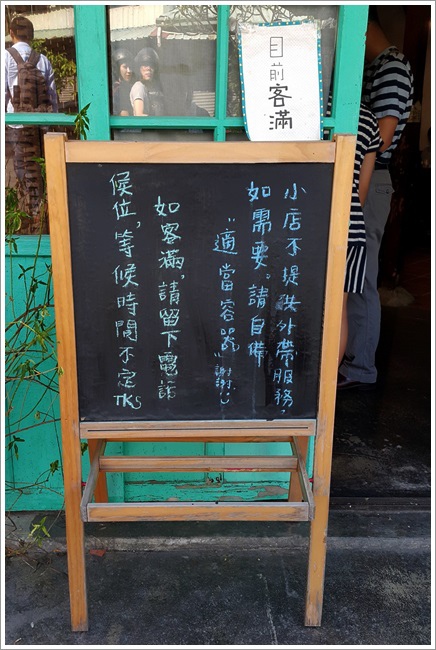 目前客滿
小店不提供外帶服務.
如需要.請自備
"適當容器"謝謝.:)
如客滿,請留下電話
候位,等候時間不定TKS